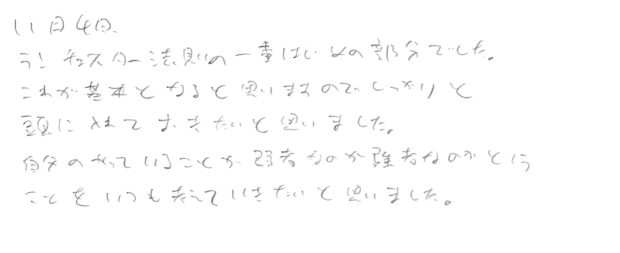 11日4日、
ランチェスター法則の一番はじめの部分でした。
これが基本となると思いますので、しっかりと
頭に入れておきたいと思いました。
自分のやっていることが弱者なのか強者なのかという
ことをいつも考えていきたいと思いました。